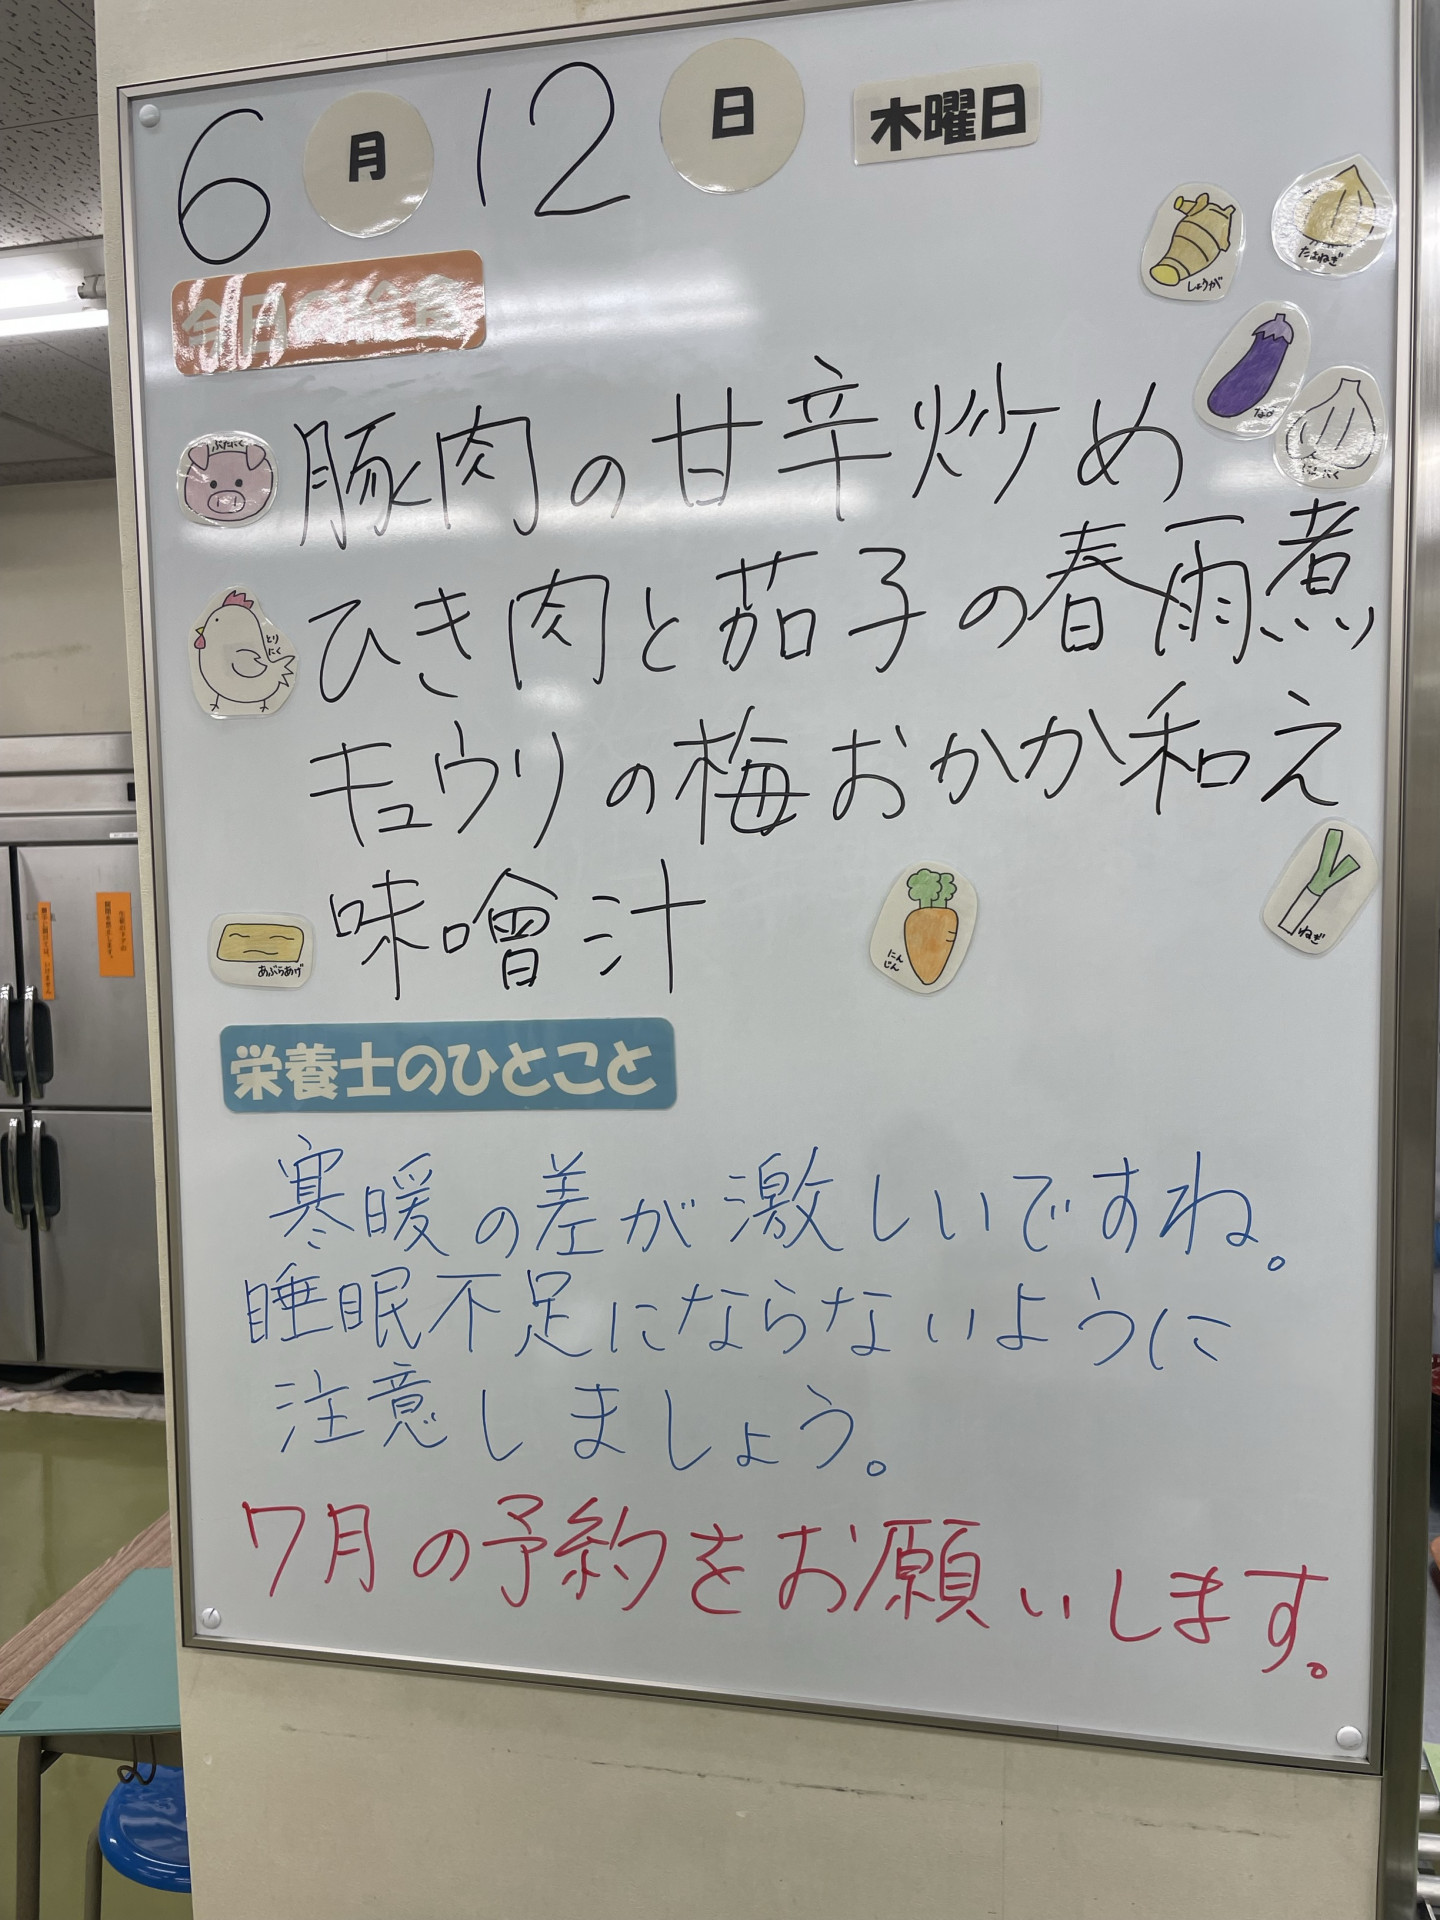 6月12日 木曜日
しょうが
たまねぎ
今日の給食
なす
にんにく
ぶたにく
豚肉の甘辛炒め
とりにく
ひき肉と茄子の春雨煮
キュウリの梅おかか和え
あぶらあげ
味噌汁
にんじん
ねぎ
栄養士のひとこと
寒暖の差が激しいですね。
睡眠不足にならないように
注意しましょう。
7月の予約をお願いします。